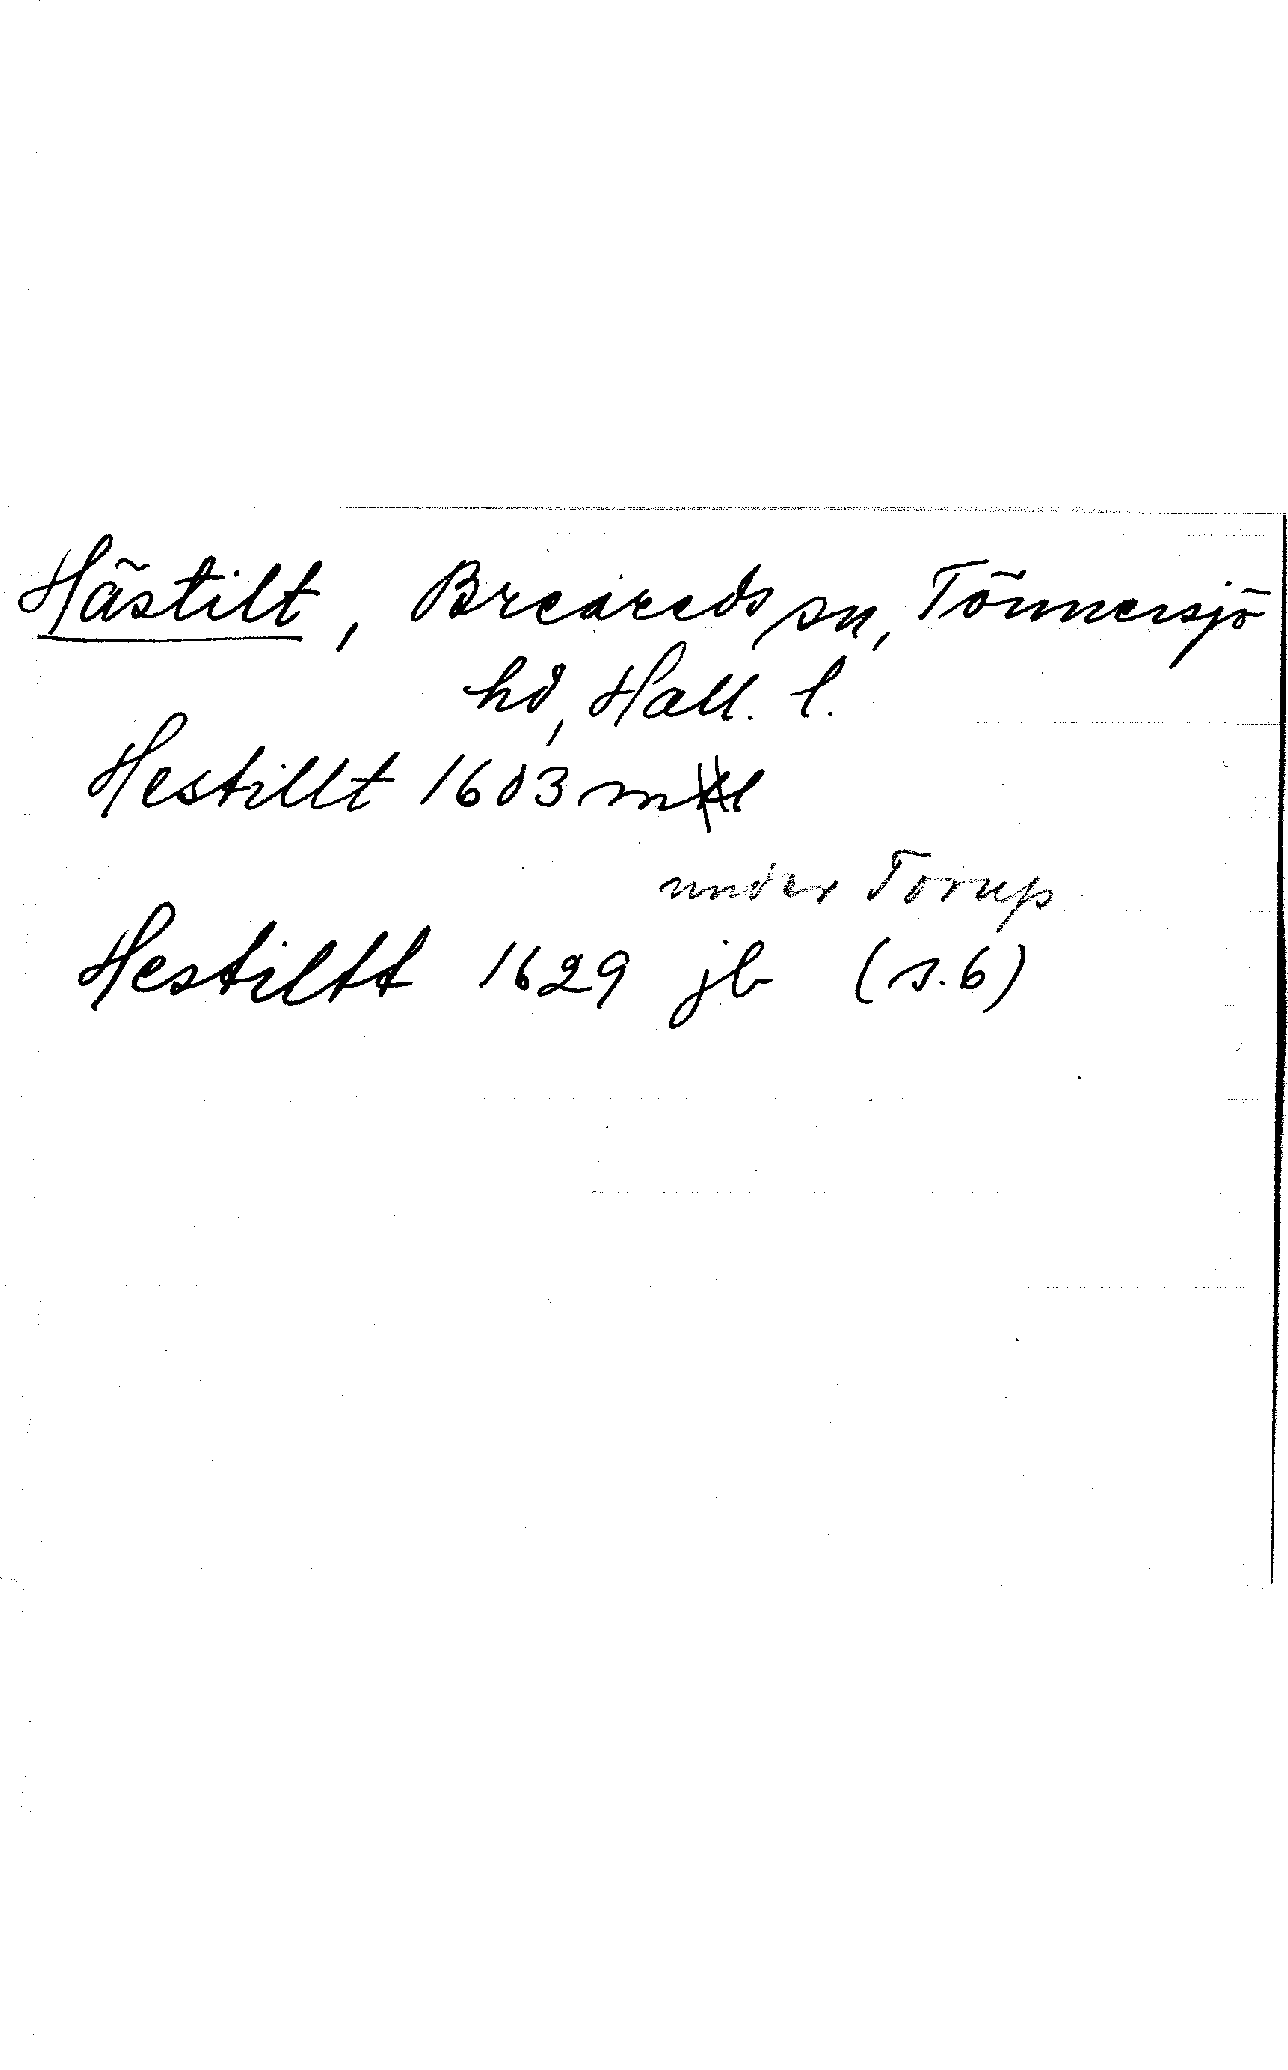 Hästilt, Breareds sn, Tönnersjö
hd, Hall. l.
Hestillt 1603 ml
under Torup
Hestiltt 1629 jb (s. 6)